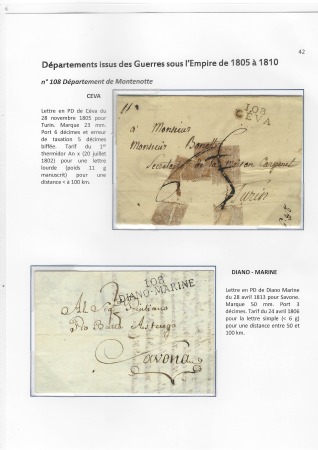 42
Départements issus des Guerres sous l'Empire de 1805 à 1810
n° 108 Département de Montenotte
CEVA
Lettre en PD de Céva du
28 novembre 1805 pour
Turin. Marque 23 mm.
Port 6 décimes et erreur
de taxation 5 décimes
biffée. Tarif du 1er
thermidor An x (20 juillet
1802) pour une lettre
lourde (poids 11 g
manuscrit) pour une
distance < à 100 km.
108
CEVA
a Monsieur
Monsieur
Turin
DIANO - MARINE
Lettre en PD de Diano Marine
du 28 avril 1813 pour Savone.
Marque 50 mm. Port 3
décimes. Tarif du 24 avril 1806
pour la lettre simple (< 6 g)
pour une distance entre 50 et
100 km.
108
DIANO-MARINE
Savona